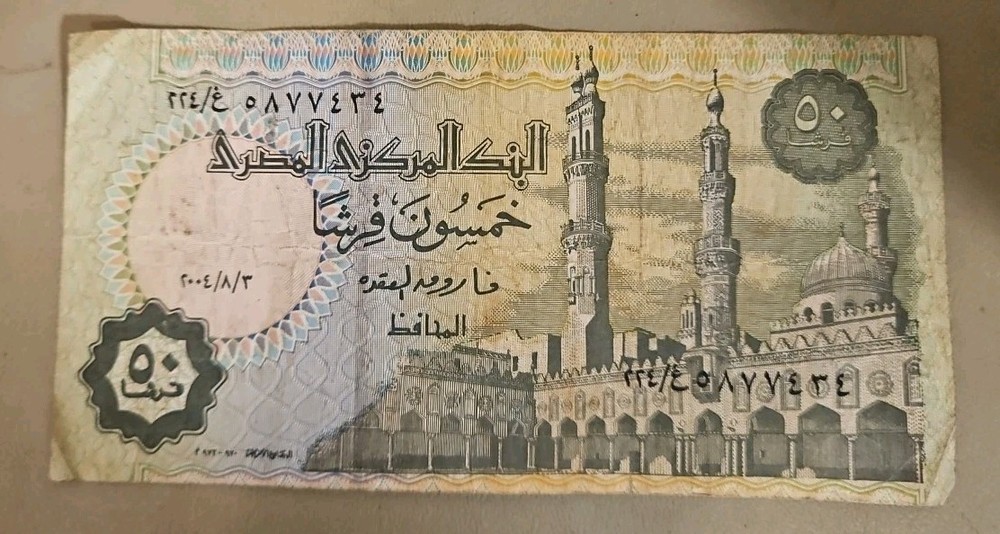 ٥٨٧٧٤٣٤ غ/٢٢٤
٥٠
قرشا
البنك المركزى المصرى
خَمسُونَ قِرشًا
٢٠٠٤/٨/٣
فاروق العقدة
المحافظ
٥٠
قرشا
٥٨٧٧٤٣٤ غ/٢٢٤